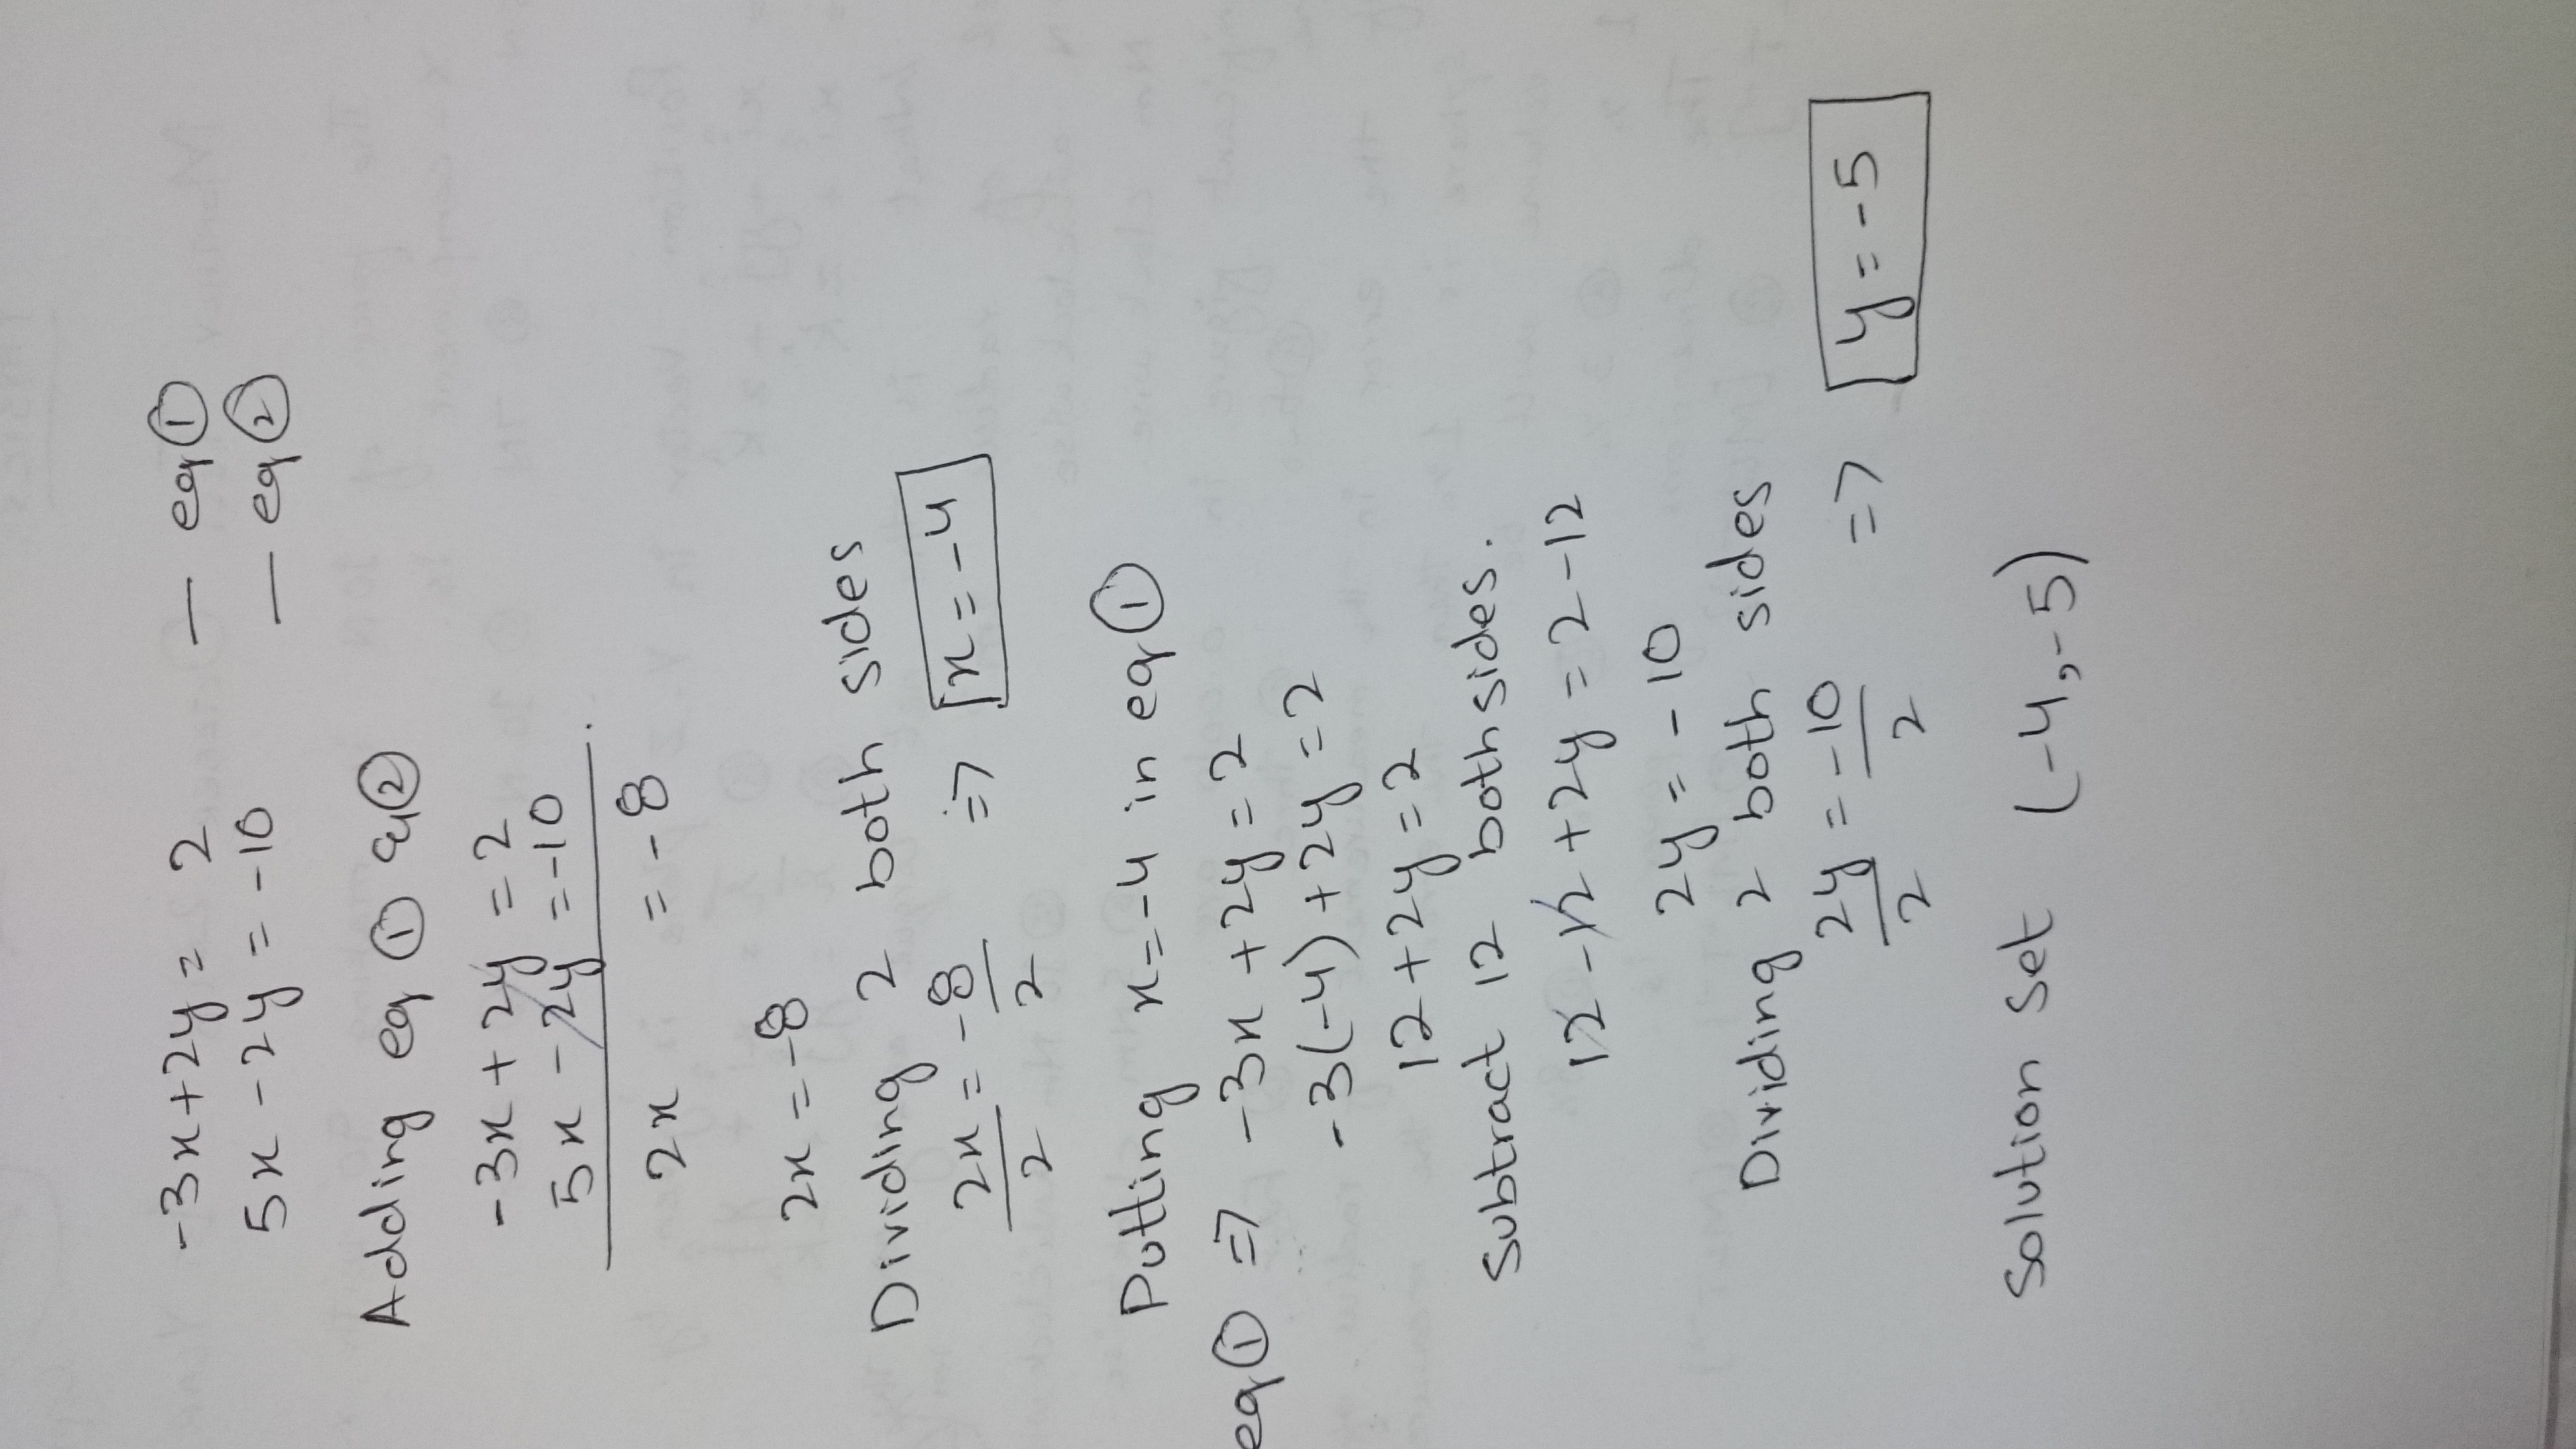 -3x+2y= 2 — eq①
5x-2y= -10 — eq②
Adding eq ① & ②
-3x+2y=2
5x-2y=-10
2x = -8
2x=-8
Dividing 2 both sides
2x/2=-8/2 => x=-4
Putting x=-4 in eq①
eq① => -3x+2y=2
-3(-4)+2y=2
12+2y=2
Subtract 12 both sides.
12-12+2y=2-12
2y=-10
Dividing 2 both sides
2y/2=-10/2 => y=-5
Solution Set (-4,-5)